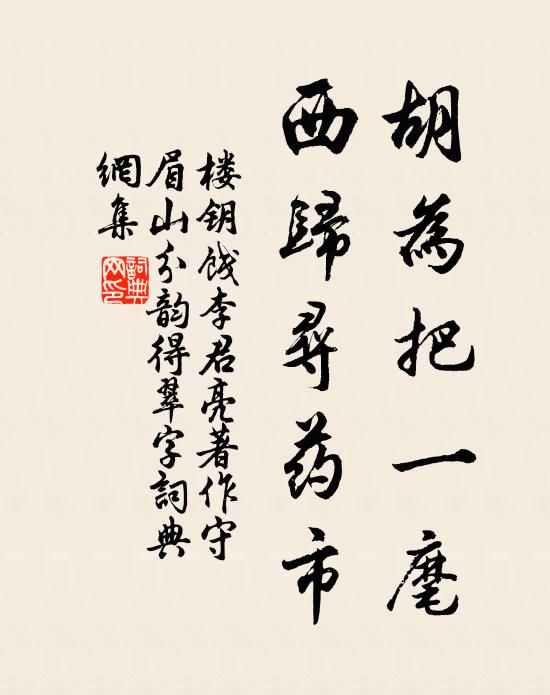 胡為把一麾
西歸尋药市
楼钥饯李君亮著作守
眉山分韵得翠字詞典
網集
詞典網印